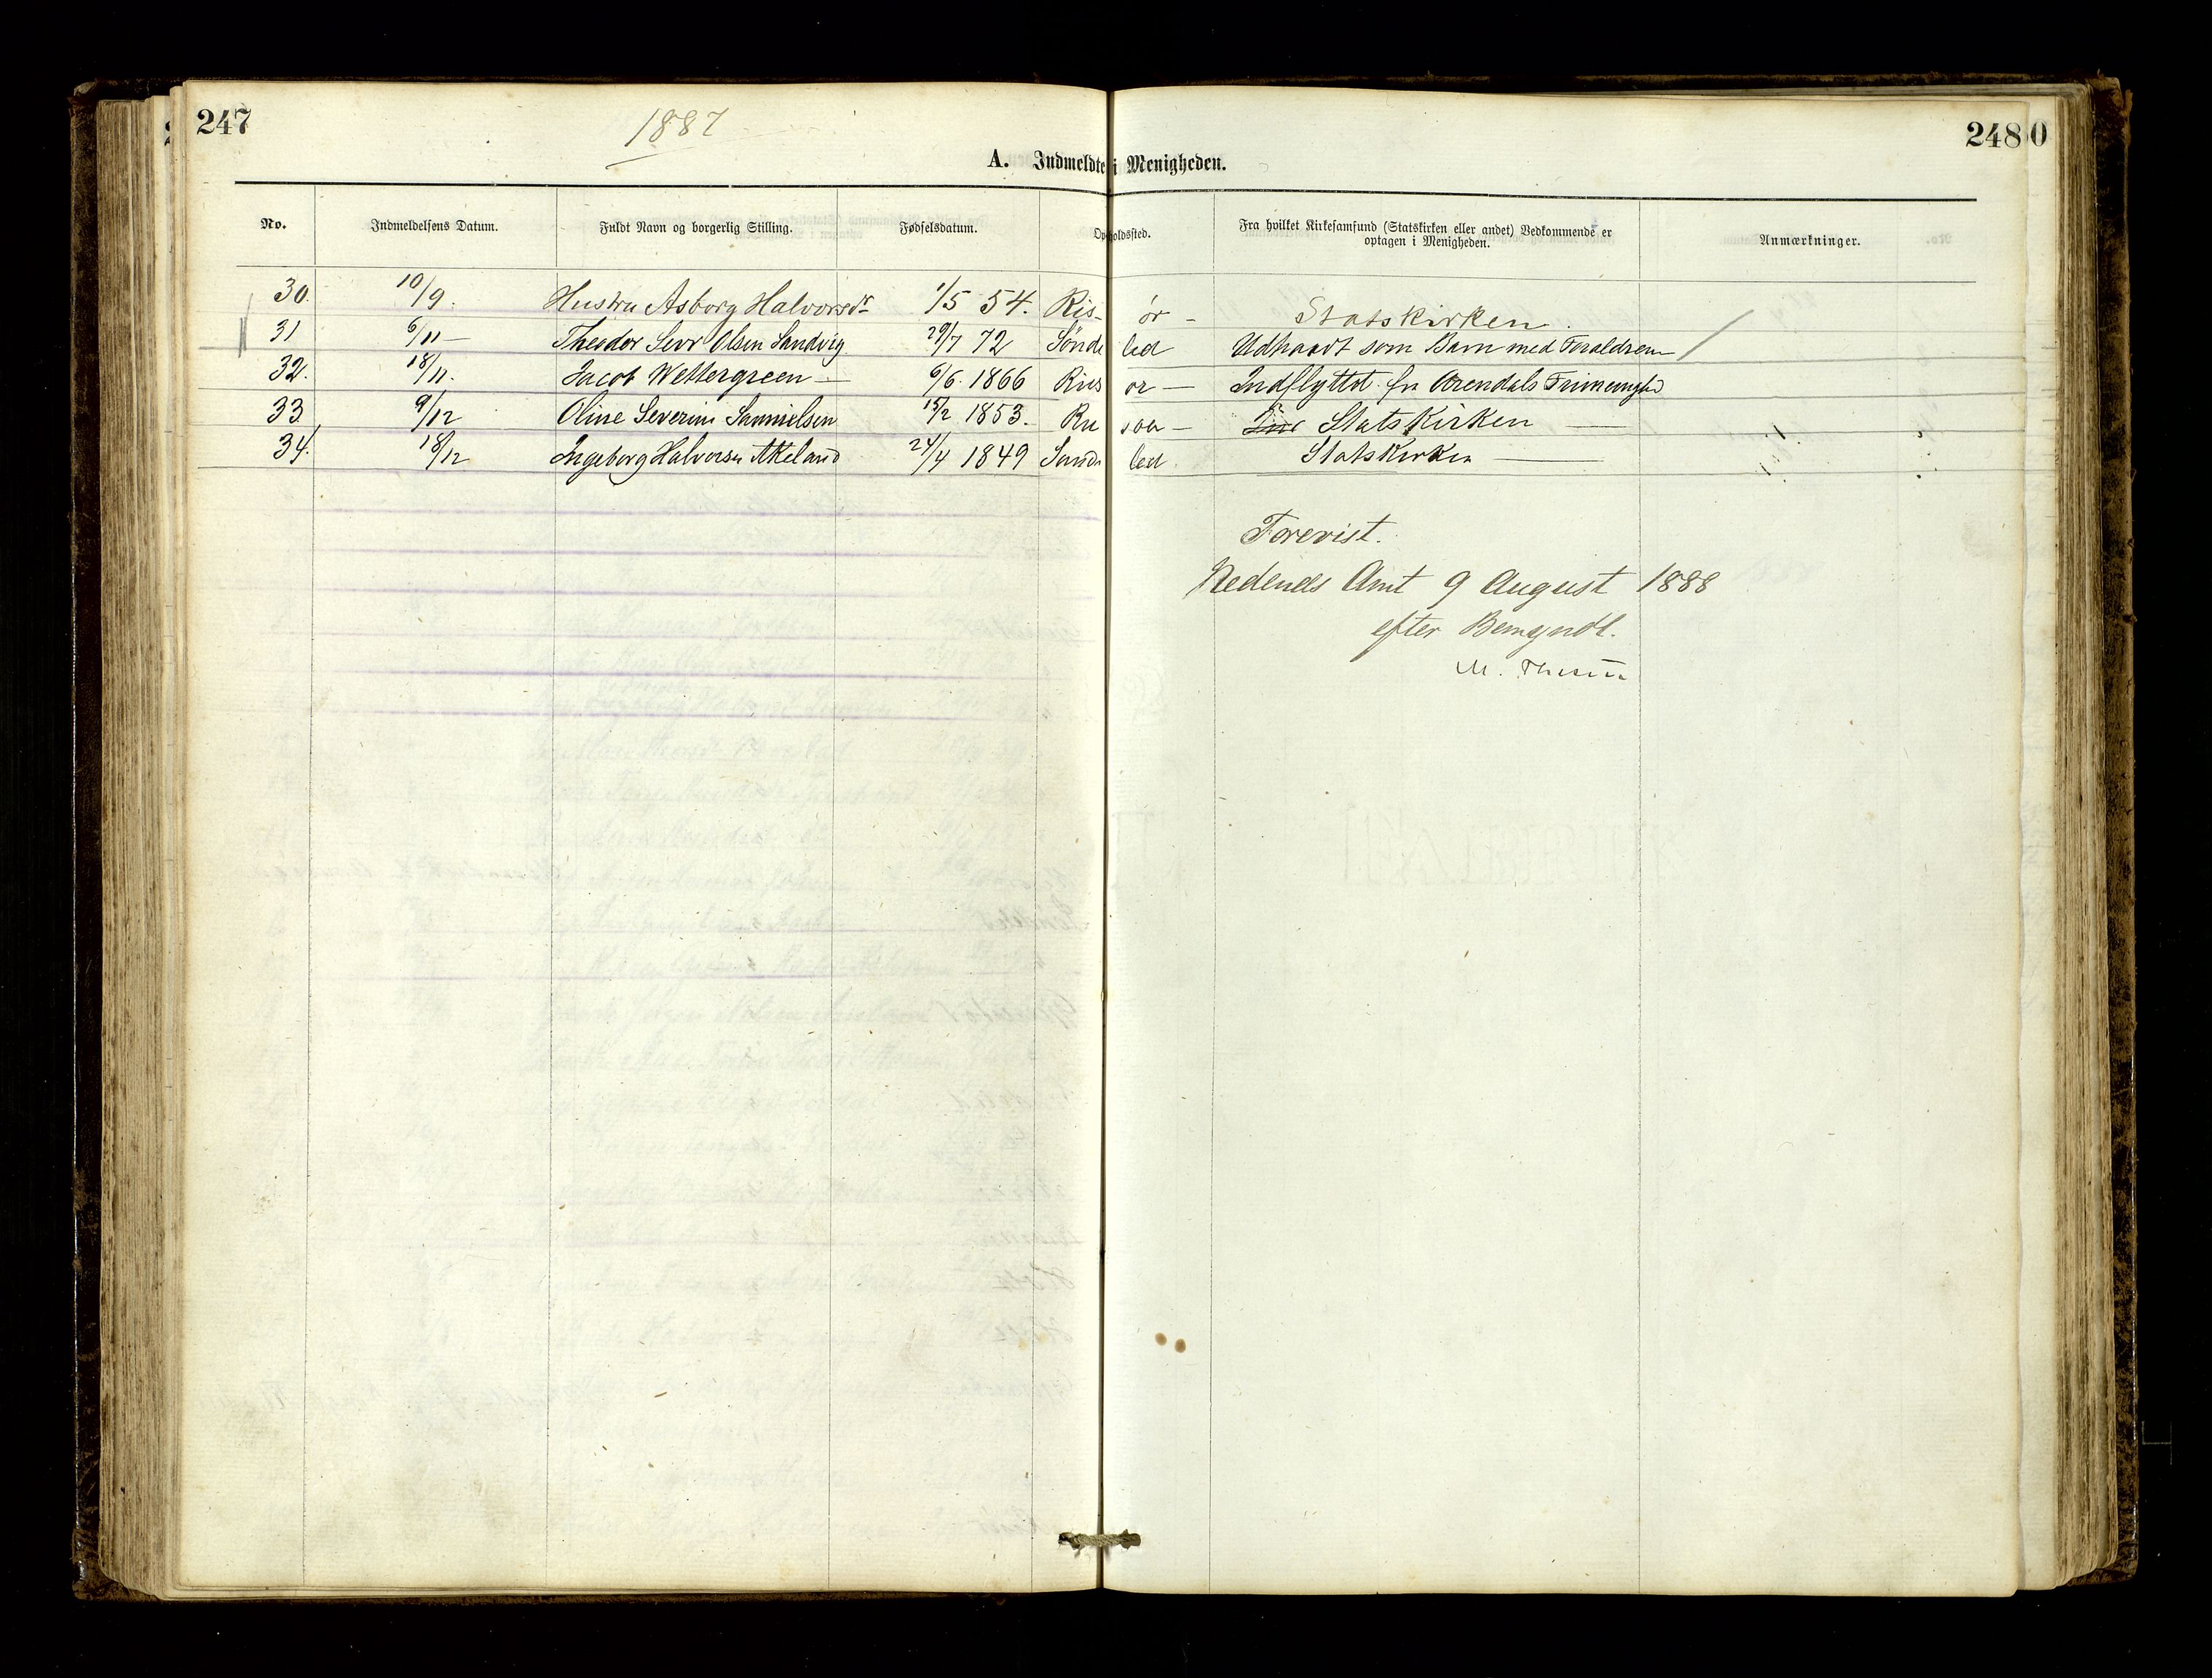 247
1887
248
0
A. Indmeldte i Menigheden.
No. Indmeldelsens Datum. Fuldt Navn og borgerlig Stilling. Fødselsdatum. Opholdssted. Fra hvilket Kirkesamfund (Statskirken eller andet) Vedkommende er optagen i Menigheden. Anmærkninger.
30. 10/9. Hustru Asborg Halvorsdr 1/5 54. Ris-ör - Statskirken.
31 6/11 - Theodor Sevr Olsen Sandvig 29/7 72 Sönde led Udtraadt som Barn med Foraldrene
32. 18/11. Jacob Wettergreen - 6/6. 1866 Riis or - Indflyttet fra Arendals Frimenighed
33 9/12 Oline Severine Samuelsen 15/2 1853. - Statskirken -
34. 18/12 Ingeborg Halvorsen Akeland 24/4 1849 Sönde led Statskirken -
Forevist.
Nedenes Amt 9 August 1888
efter Bemyndl.
M.